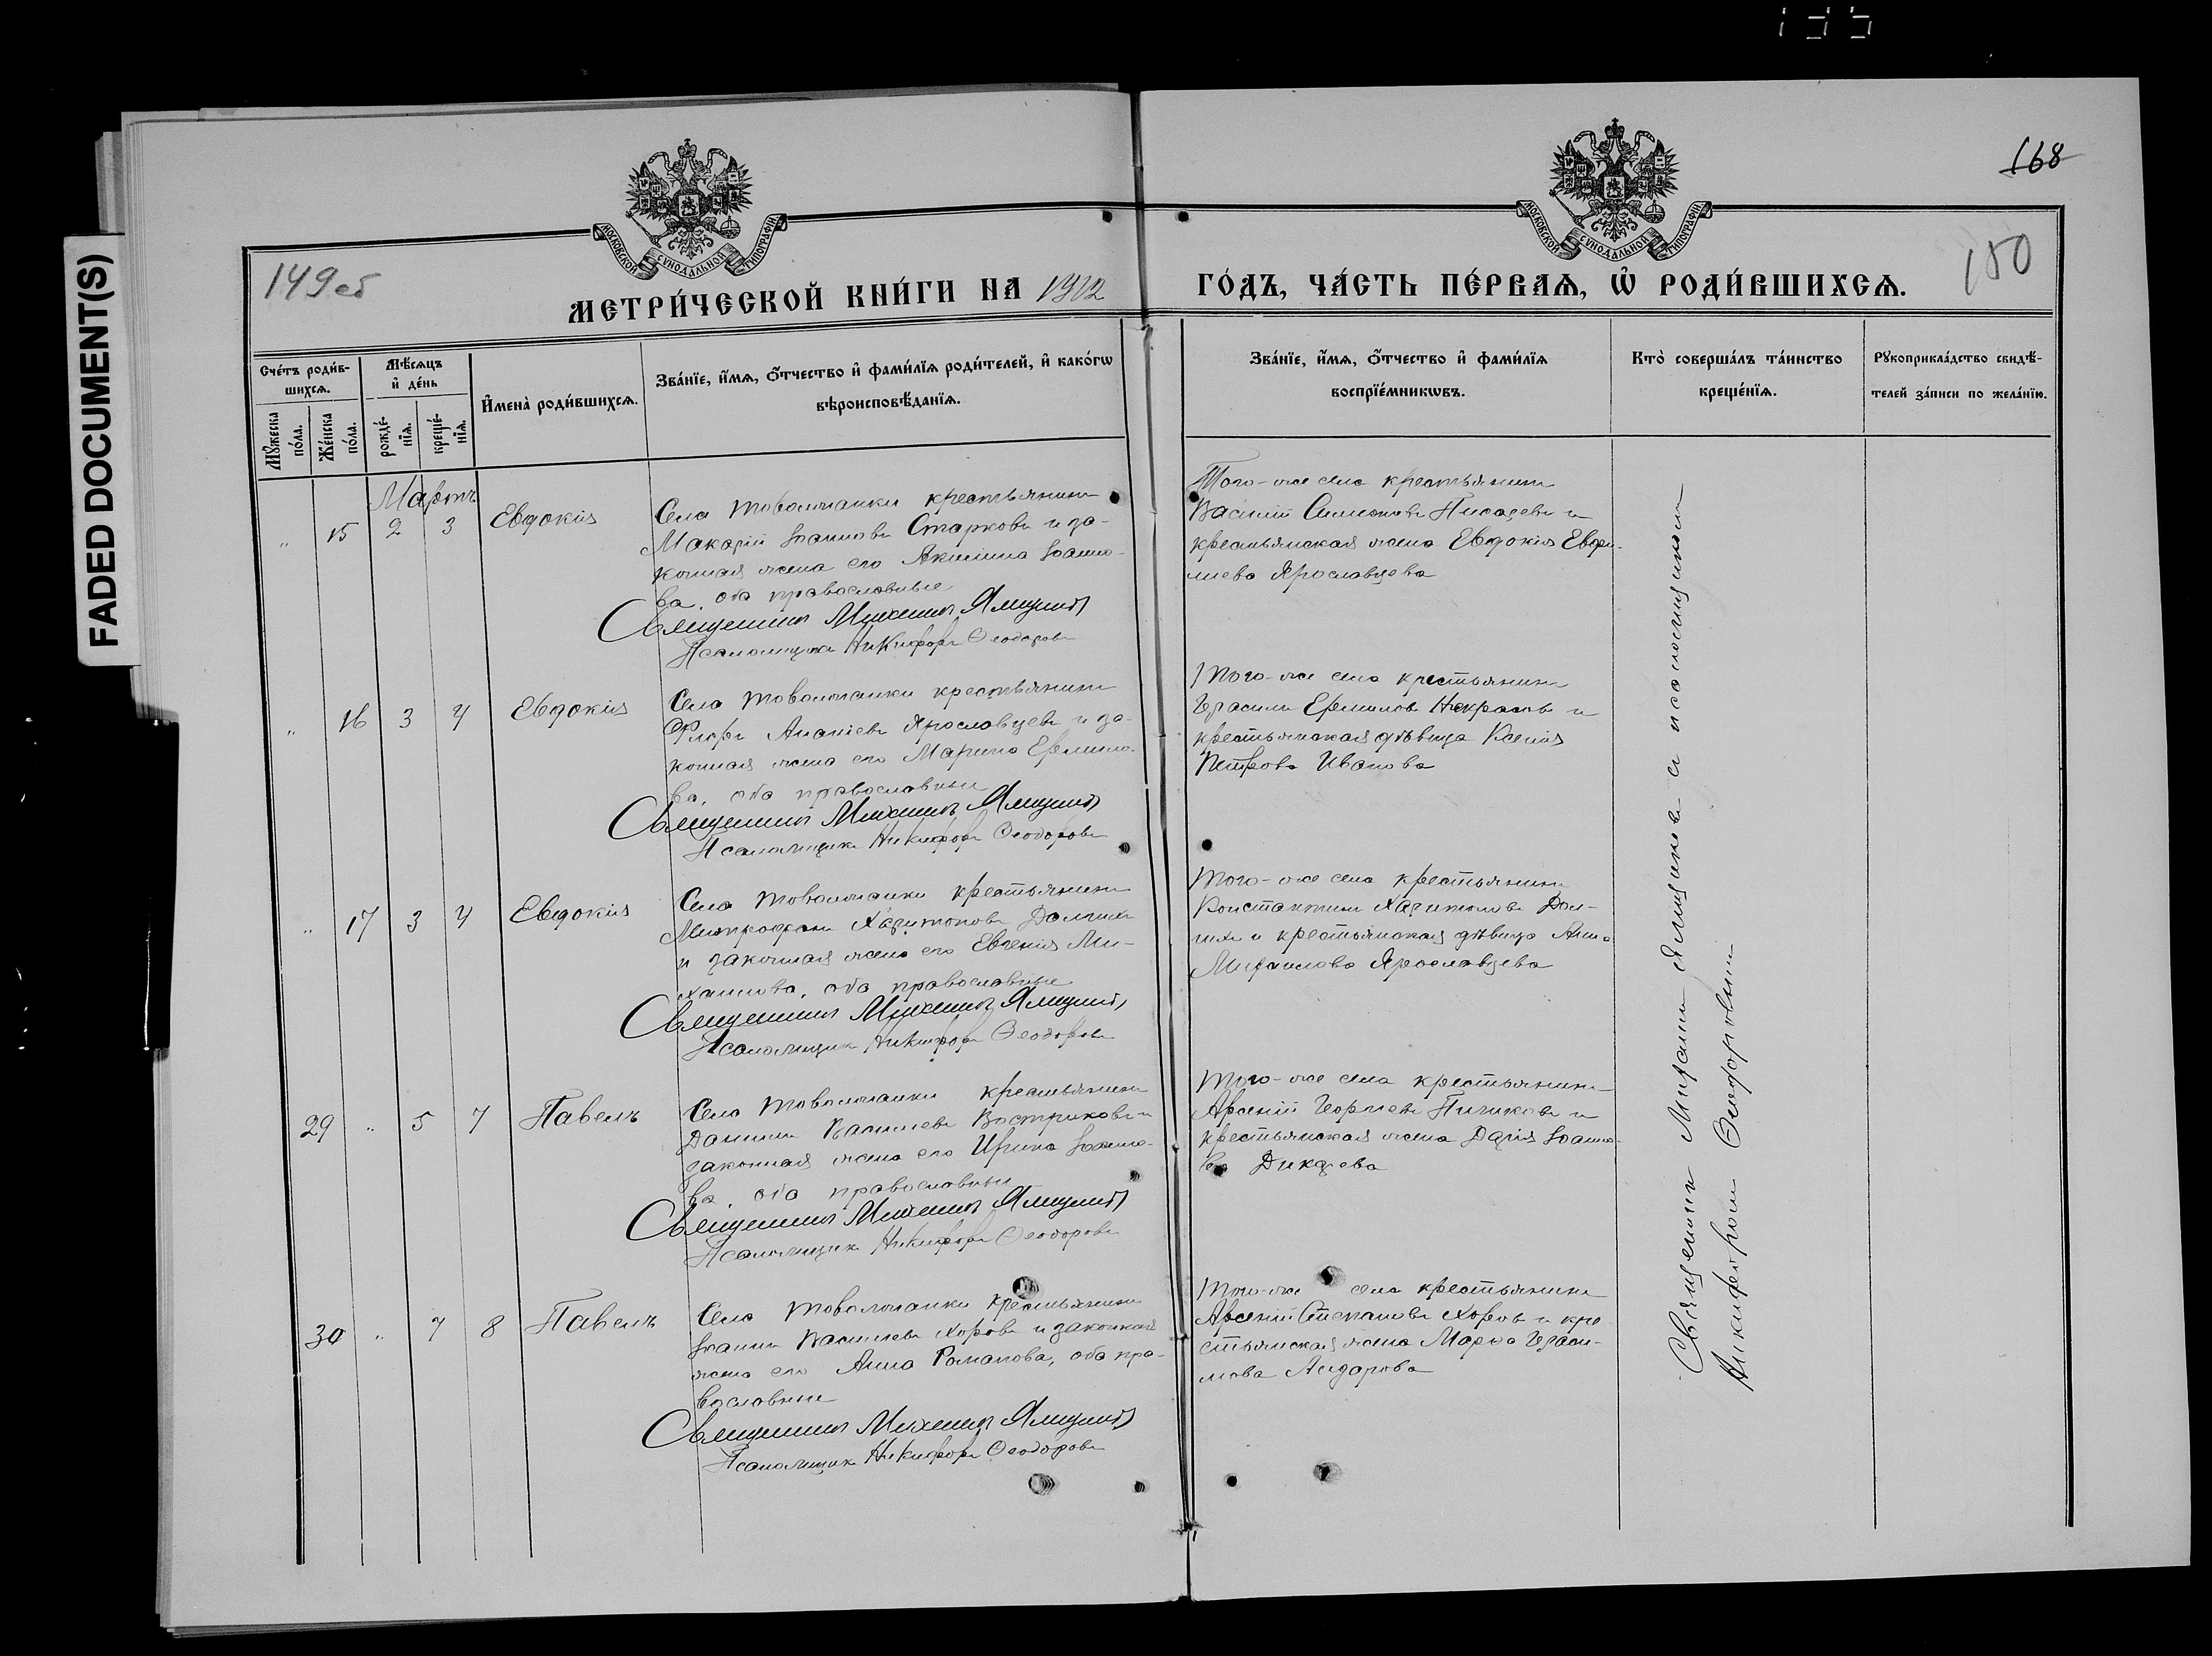 135
FADED DOCUMENT(S)
168
149 об
150
МОСКОВСКОЙ СУНОДАЛЬНОЙ ТИПОГРАФІИ
МОСКОВСКОЙ СУНОДАЛЬНОЙ ТИПОГРАФІИ
МЕТРИ́ЧЕСКОЙ КНИ́ГИ НА 1912 ГО́ДЪ, ЧА́СТЬ ПЕ́РВАѦ, Ѡ РОДИ́ВШИХСѦ.
Сче́тъ роди́в-
шихсѧ.
Мꙋ́жеска по́ла.
Же́нска по́ла.
Мѣ́сѧцъ
и҆ де́нь
рожде́-
нїѧ.
креще́-
нїѧ.
И҆мена̀ роди́вшихсѧ.
Зва́нїе, и҆́мѧ, ѻ҆́тчество и҆ фами́лїѧ роди́телей, и҆ како́гѡ
вѣроисповѣ́данїѧ.
Зва́нїе, и҆́мѧ, ѻ҆́тчество и҆ фами́лїѧ
воспрїе́мникѡвъ.
Кто̀ соверша́лъ та́инство
креще́нїѧ.
Рꙋкоприкла́дство свидѣ́-
телей за́писи по жела́нїю.
Мартъ
" 15 2 3 Евдокія
Села Товолжанки крестьянинъ
Макарій Іоанновъ Старковъ и за-
конная жена его Акилина Іоанно-
ва, оба православные
Священникъ Михаилъ Ямщиковъ
Псаломщикъ Никифоръ Ѳеодоровъ
Того-же села крестьянинъ
Василій Симеоновъ Писаревъ и
крестьянская жена Евдокія
Ярославцева
" 16 3 4 Евдокія
Села Товолжанки крестьянинъ
Флоръ Ананіевъ Ярославцевъ и за-
конная жена его Марина Ермило-
ва, оба православные
Священникъ Михаилъ Ямщиковъ
Псаломщикъ Никифоръ Ѳеодоровъ
Того-же села крестьянинъ
Герасимъ Ермиловъ Некрасовъ и
крестьянская дѣвица Ксенія
Петрова Иванова
" 17 3 4 Евдокія
Села Товолжанки крестьянинъ
Митрофанъ Харитоновъ Долгихъ
и законная жена его Евгенія Ми-
хаилова, оба православные
Священникъ Михаилъ Ямщиковъ
Псаломщикъ Никифоръ Ѳеодоровъ
Того-же села крестьянинъ
Константинъ Харитоновъ Дол-
гихъ и крестьянская дѣвица Анна
Михаилова Ярославцева
29 " 5 7 Павелъ
Села Товолжанки крестьянинъ
Даніилъ Василіевъ Востриковъ и
законная жена его Ирина Іоанно-
ва, оба православные
Священникъ Михаилъ Ямщиковъ
Псаломщикъ Никифоръ Ѳеодоровъ
Того-же села крестьянинъ
Арсеній Георгіевъ и
крестьянская жена Дарія Іоанно-
ва Дикарева
30 " 7 8 Павелъ
Села Товолжанки крестьянинъ
Іоаннъ Василіевъ Хоровъ и законная
жена его Анна Романова, оба пра-
вославные
Священникъ Михаилъ Ямщиковъ
Псаломщикъ Никифоръ Ѳеодоровъ
Того-же села крестьянинъ
Арсеній Степановъ Хоровъ и кре-
стьянская жена Марѳа Гераси-
мова Айдарова
Священникъ Михаилъ Ямщиковъ съ псаломщикомъ
Никифоромъ Ѳеодоровымъ